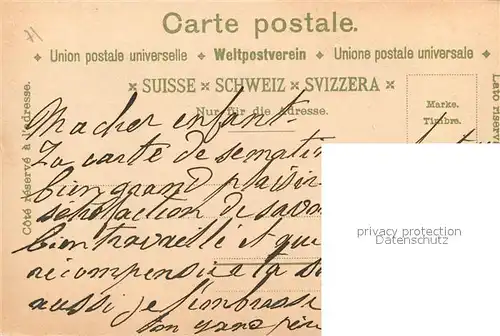 Carte postale.
❖ Union postale universelle ❖ Weltpostverein ❖ Unione postale universale ❖
× SUISSE × SCHWEIZ × SVIZZERA ×
Nur für die Adresse.
Marke.
Timbre.
Côté réservé à l'adresse.
Lato riserv
Ma cher enfant.
Ta carte de se matin
bien grand plaisir
sétisfaction de savoir
bien travaillé et que
récompensie a ta s
aussi je t'embrasse
ton gand père
privacy protection
Datenschutz